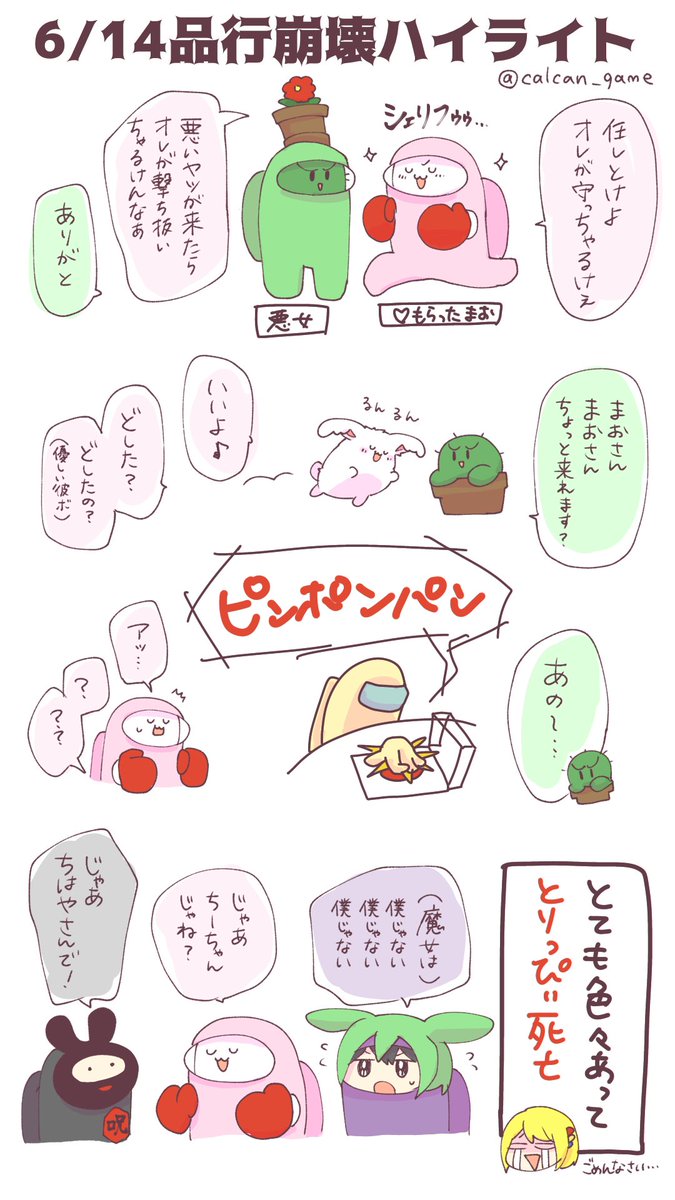 6/14品行崩壊ハイライト
@calcan_game
任しとけよ
オレが守っちゃるけぇ
シェリフゥゥ…
悪いヤツが来たら
オレが撃ち抜い
ちゃるけんなぁ
ありがと
悪女
♡もらったまお
まおさん
まおさん
ちょっと来れます?
るんるん
いいよ♪
どした?
どしたの?
(優しい彼ボ)
あの〜…
ピンポンパン
アッ…
?
??
とても色々あって
とりっぴぃ死亡
ごめんなさい…
(魔女は)
僕じゃない
僕じゃない
僕じゃない
じゃあ
ちーちゃん
じゃね?
じゃあ
ちはやさんで!
呪